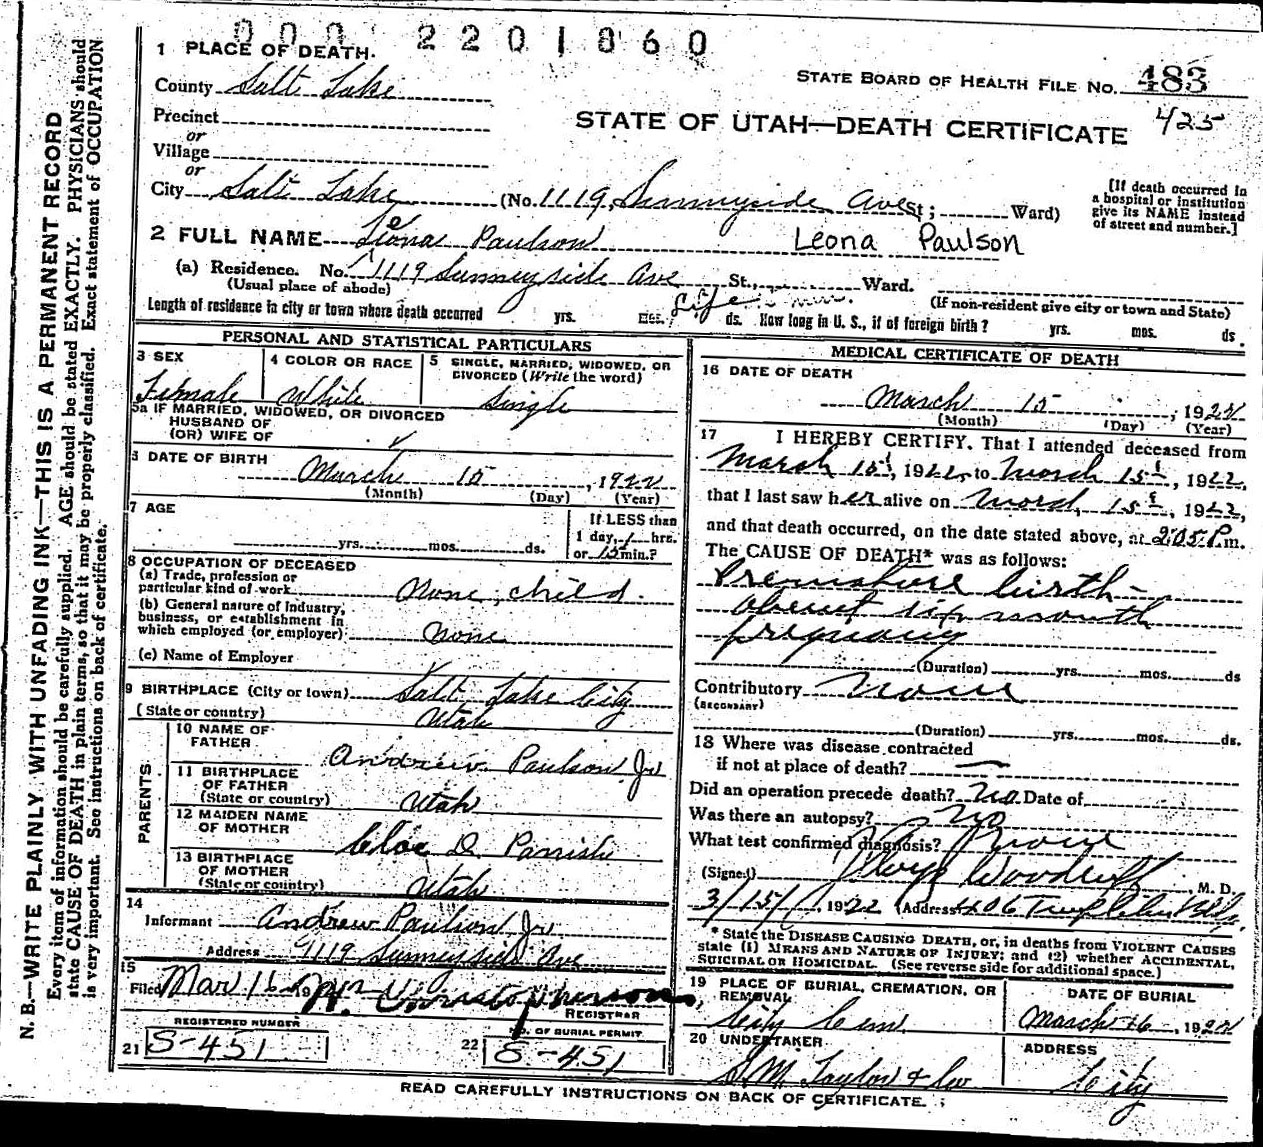 000 2201860
1 PLACE OF DEATH.
STATE BOARD OF HEALTH FILE NO. 483
County Salt Lake
425
Precinct
STATE OF UTAH—DEATH CERTIFICATE
or
Village
or
City Salt Lake (No. 1119 Sunnyside Ave St; Ward)
[If death occurred in a hospital or institution give its NAME instead of street and number.]
2 FULL NAME Leona Paulson Leona Paulson
(a) Residence. No. 1119 Sunnyside Ave St., Ward.
(Usual place of abode) (If non-resident give city or town and State)
Length of residence in city or town where death occurred yrs. mos. Life ds. How long in U. S., if of foreign birth? yrs. mos. ds.
PERSONAL AND STATISTICAL PARTICULARS
3 SEX Female
4 COLOR OR RACE White
5 SINGLE, MARRIED, WIDOWED, OR DIVORCED (Write the word) Single
5a IF MARRIED, WIDOWED, OR DIVORCED
HUSBAND OF
(OR) WIFE OF
6 DATE OF BIRTH
March 15, 1922
(Month) (Day) (Year)
7 AGE
yrs. mos. ds.
If LESS than
1 day, 1 hrs.
or 15 min.?
8 OCCUPATION OF DECEASED
(a) Trade, profession or
particular kind of work None, child.
(b) General nature of Industry,
business, or establishment in
which employed (or employer) None
(c) Name of Employer
9 BIRTHPLACE (City or town) Salt Lake City
(State or country) Utah
PARENTS
10 NAME OF
FATHER Andrew Paulson Jr
11 BIRTHPLACE
OF FATHER
(State or country) Utah
12 MAIDEN NAME
OF MOTHER Cloe D. Parrish
13 BIRTHPLACE
OF MOTHER
(State or country) Utah
14
Informant Andrew Paulson Jr
Address 1119 Sunnyside Ave
15
Filed Mar 16
REGISTRAR
REGISTERED NUMBER
21 S-451
NO. OF BURIAL PERMIT
22 S-451
MEDICAL CERTIFICATE OF DEATH
16 DATE OF DEATH
March 15, 1922
(Month) (Day) (Year)
17 I HEREBY CERTIFY. That I attended deceased from
March 15, 1922, to March 15, 1922,
that I last saw her alive on March, 15, 1922,
and that death occurred, on the date stated above, at 2:05 P.m.
The CAUSE OF DEATH* was as follows:
Premature birth—
about six month
pregnancy
(Duration) yrs. mos. ds
Contributory None
(SECONDARY)
(Duration) yrs. mos. ds.
18 Where was disease contracted
if not at place of death? —
Did an operation precede death? No Date of
Was there an autopsy? No
What test confirmed diagnosis? None
(Signed) Woodruff, M. D.
3/15/, 1922 (Address) 406 Templeton Bldg.
* State the DISEASE CAUSING DEATH, or, in deaths from VIOLENT CAUSES
state (1) MEANS AND NATURE OF INJURY; and (2) whether ACCIDENTAL,
SUICIDAL OR HOMICIDAL. (See reverse side for additional space.)
19 PLACE OF BURIAL, CREMATION, OR
REMOVAL
City Cem
DATE OF BURIAL
March 16, 1922
20 UNDERTAKER
S. M. Taylor & Co
ADDRESS
City
READ CAREFULLY INSTRUCTIONS ON BACK OF CERTIFICATE.
N. B.—WRITE PLAINLY WITH UNFADING INK—THIS IS A PERMANENT RECORD
Every item of information should be carefully supplied. AGE should be stated EXACTLY. PHYSICIANS should
state CAUSE OF DEATH in plain terms, so that it may be properly classified. Exact statement of OCCUPATION
is very important. See instructions on back of certificate.